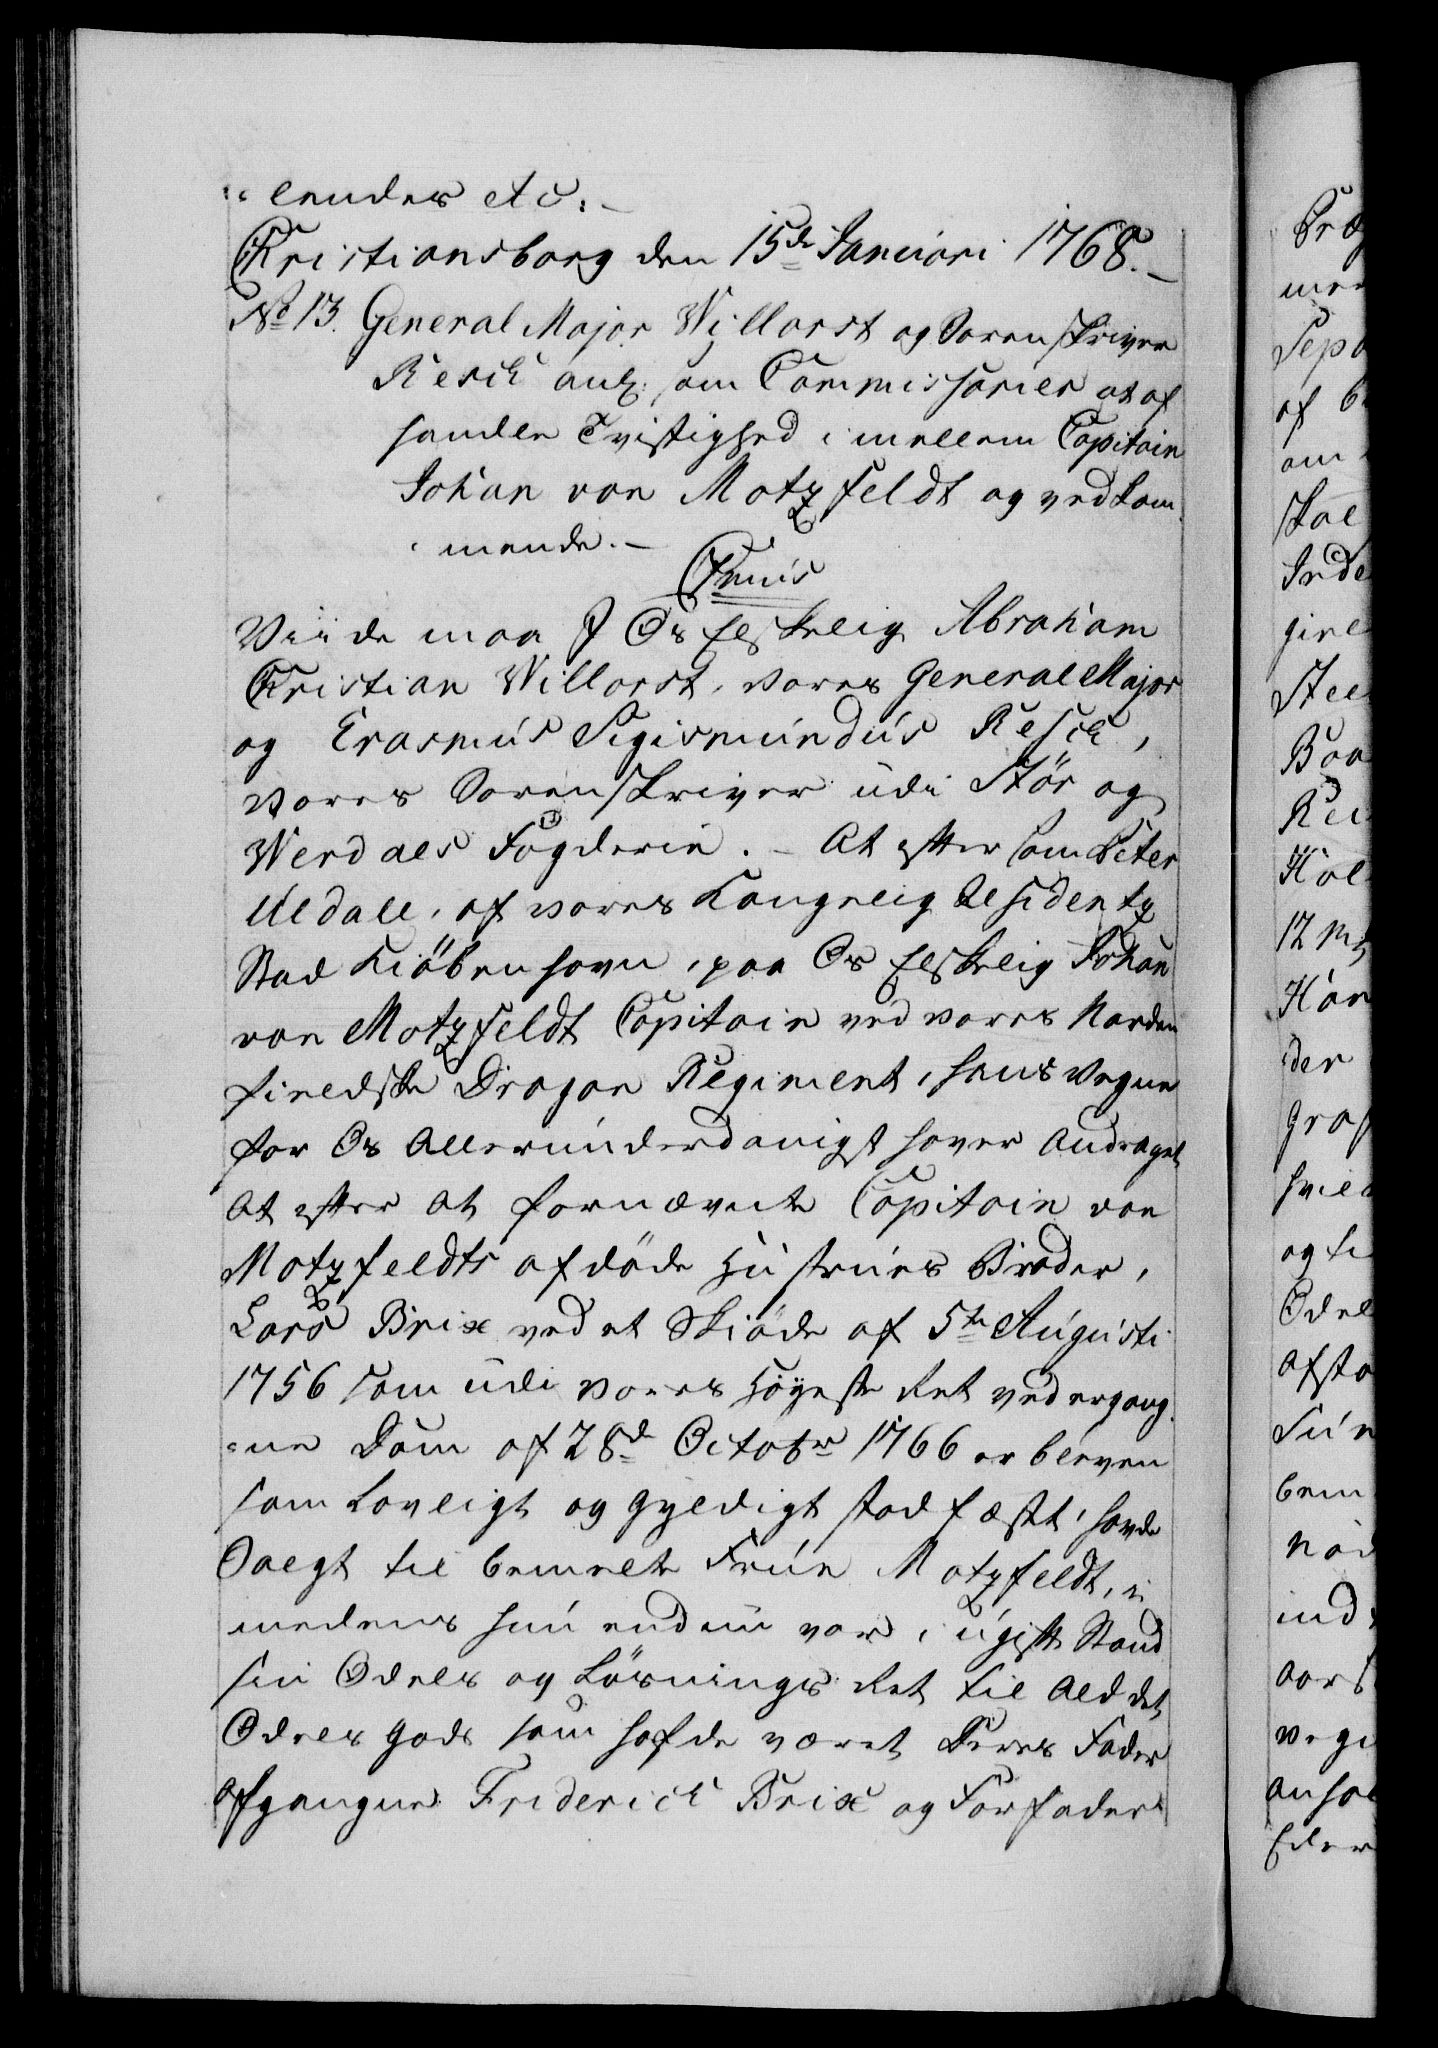 lendes etc:
Christiansborg den 15de Januari 1768.
No 13. General Major Willorst og Sorenskriver
Resch anl: som Commissarier at af
handle Tvistighed imellem Capitain
Johan von Motzfeldt og vedkom
mende.
Cr: 7mus
Viide maa I Os Elskelig Abraham
Christian Willorst, vores General Major
og Erasmus Sigismundus Resch,
vores Sorenskriver udi Stör og
Werdaels Fogderie. At eftersom Peter
Uldall, af vores Kongelig Residentz
Stad Kiöbenhavn, paa Os Elskelig Johan
von Motzfeldt Capitain ved vores Norden
fieldske Dragon Regiment, hans Vegne
for Os Allerunderdanigst haver Andraget,
At efter at fornævnte Capitain von
Motzfeldts afdöde Hustrues Broder,
Lars Brix ved et Skiöde af 5te Augusti
1756 som udi vores Höyeste Ret ved ergang
ne Dom af 28de Octobr 1766 er bleven
som Lovligt og Gyldigt stadfæstet, havde
Solgt til bemelte Frue Motzfeldt, i
medens hun endnu var i ugift Stand
sin Odels og Lösnings Ret til Ald det
Odels Gods som hafde været Deres Fader
Afgangne Friderich Brix og Forfader